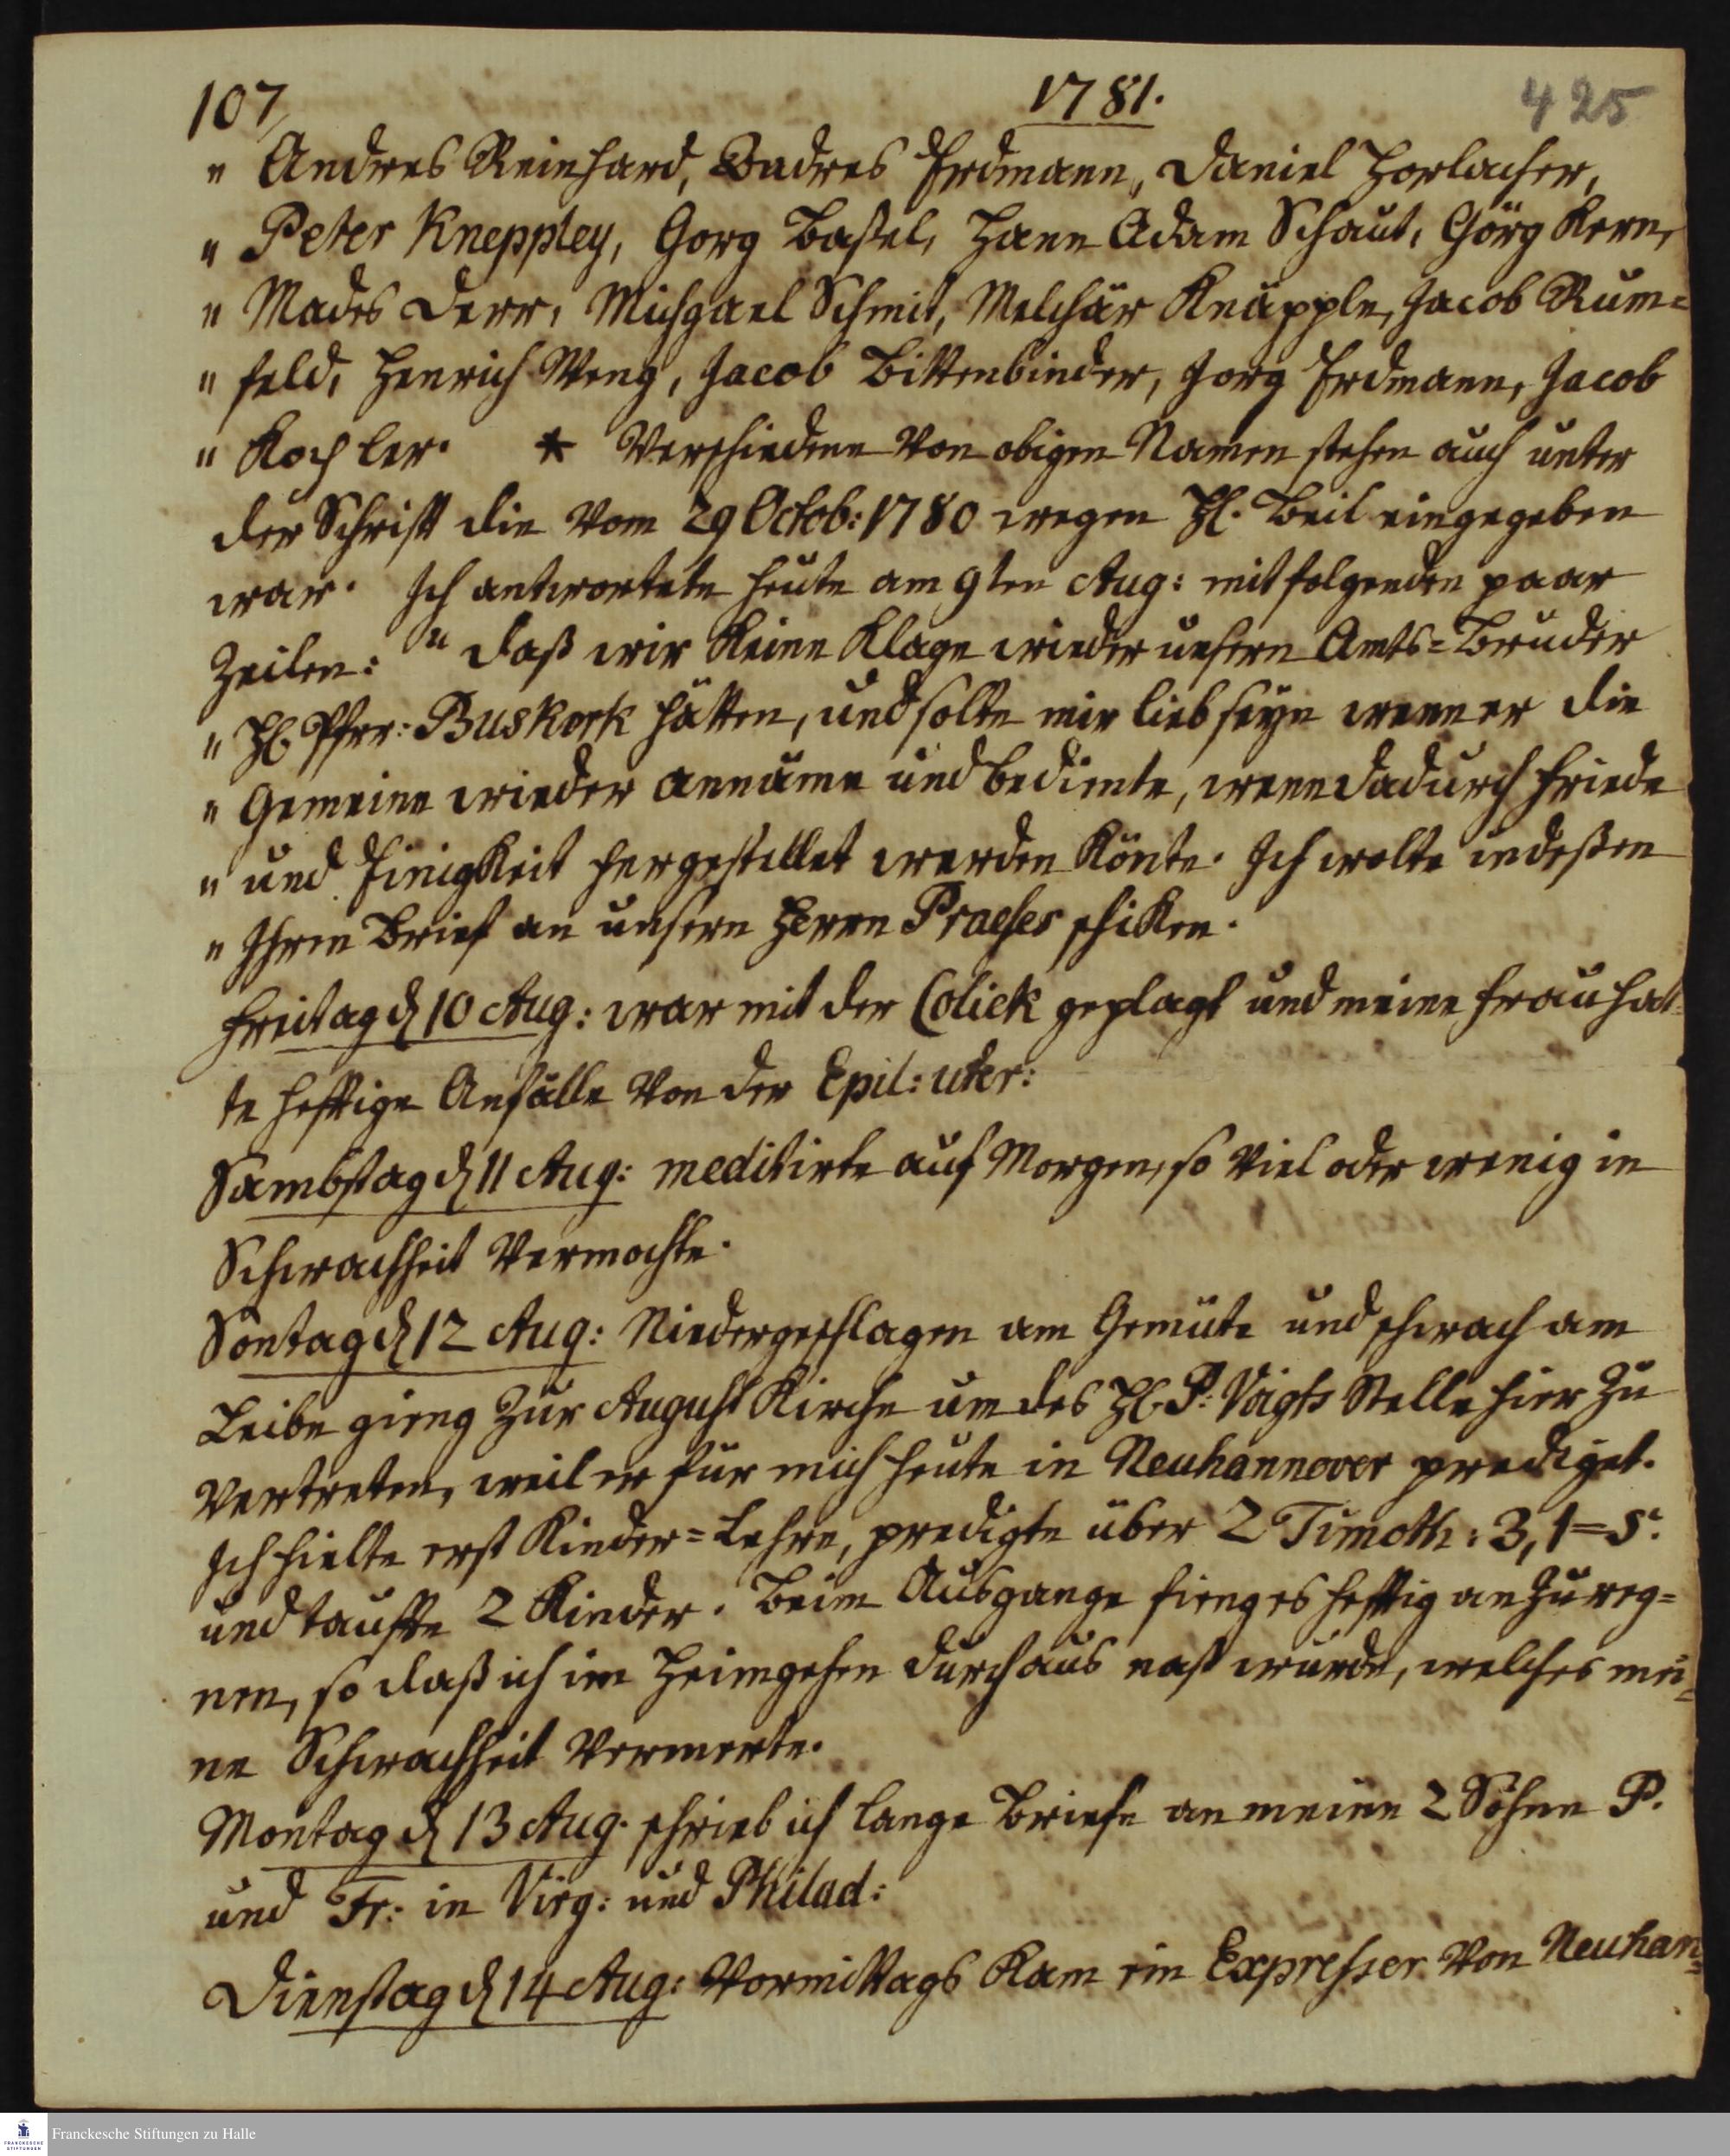 107, 1781. 425
" Andres Reinhard, Andres Erdmann, Daniel Horlacher,
" Peter Kneppley, Gorg Bastel, Hann Adam Schaut, Görg Kern,
" Mades Derr, Michgael Schmit, Melchär Knäpple, Jacob Rum=
" feld, Henrich Weng, Jacob Bittenbinder, Jorg Erdmann, Jacob
" Koch ler. * Verschiedene von obigen Namen stehen auch unter
der Schrift die vom 29 Octob: 1780 wegen Hl. Beil eingegeben
war. Ich antwortete heute am 9ten Aug: mit folgenden paar
Zeilen: " daß wir keine Klage wieder unsern Amts=Bruder
" Hl. Pfrr: Buskerk hätten, und solte mir lieb seyn wenn er die
" Gemeine wieder annäme und bediente, wenn dadurch Friede
" und Einigkeit hergestellet werden könte. Ich wolte indeßen
" Ihren Brief an unsern Herrn Praeses schiken.
Freitag d 10 Aug: war mit der Colick geplagt und meine Frau hat=
te heftige Anfälle von der Epil: uter:
Sambstag d 11 Aug: meditirte auf Morgen, so viel oder wenig in
Schwachheit vermochte.
Sontag d 12 Aug: Niedergeschlagen am Gemüte und schwach am
Leibe gieng zur August Kirche um des Hl. P. Voigts Stelle hier zu
vertreten, weil er für mich heute in Neuhannover prediget.
Ich hielte erst Kinder=Lehre, predigte über 2 Timoth: 3, 1=5.
und taufte 2 Kinder. Beim Ausgange fieng es heftig an zu reg=
nen, so daß ich im Heimgehen durchaus naß wurde, welches mei=
ne Schwachheit vermerte.
Montag d 13 Aug. schrieb ich lange Briefe an meine 2 Söhne P.
und Fr: in Virg: und Philad:
Dienstag d 14 Aug: Vormittags kam ein Expresser von Neuhan=
FRANCKESCHE
STIFTUNGEN
Franckesche Stiftungen zu Halle